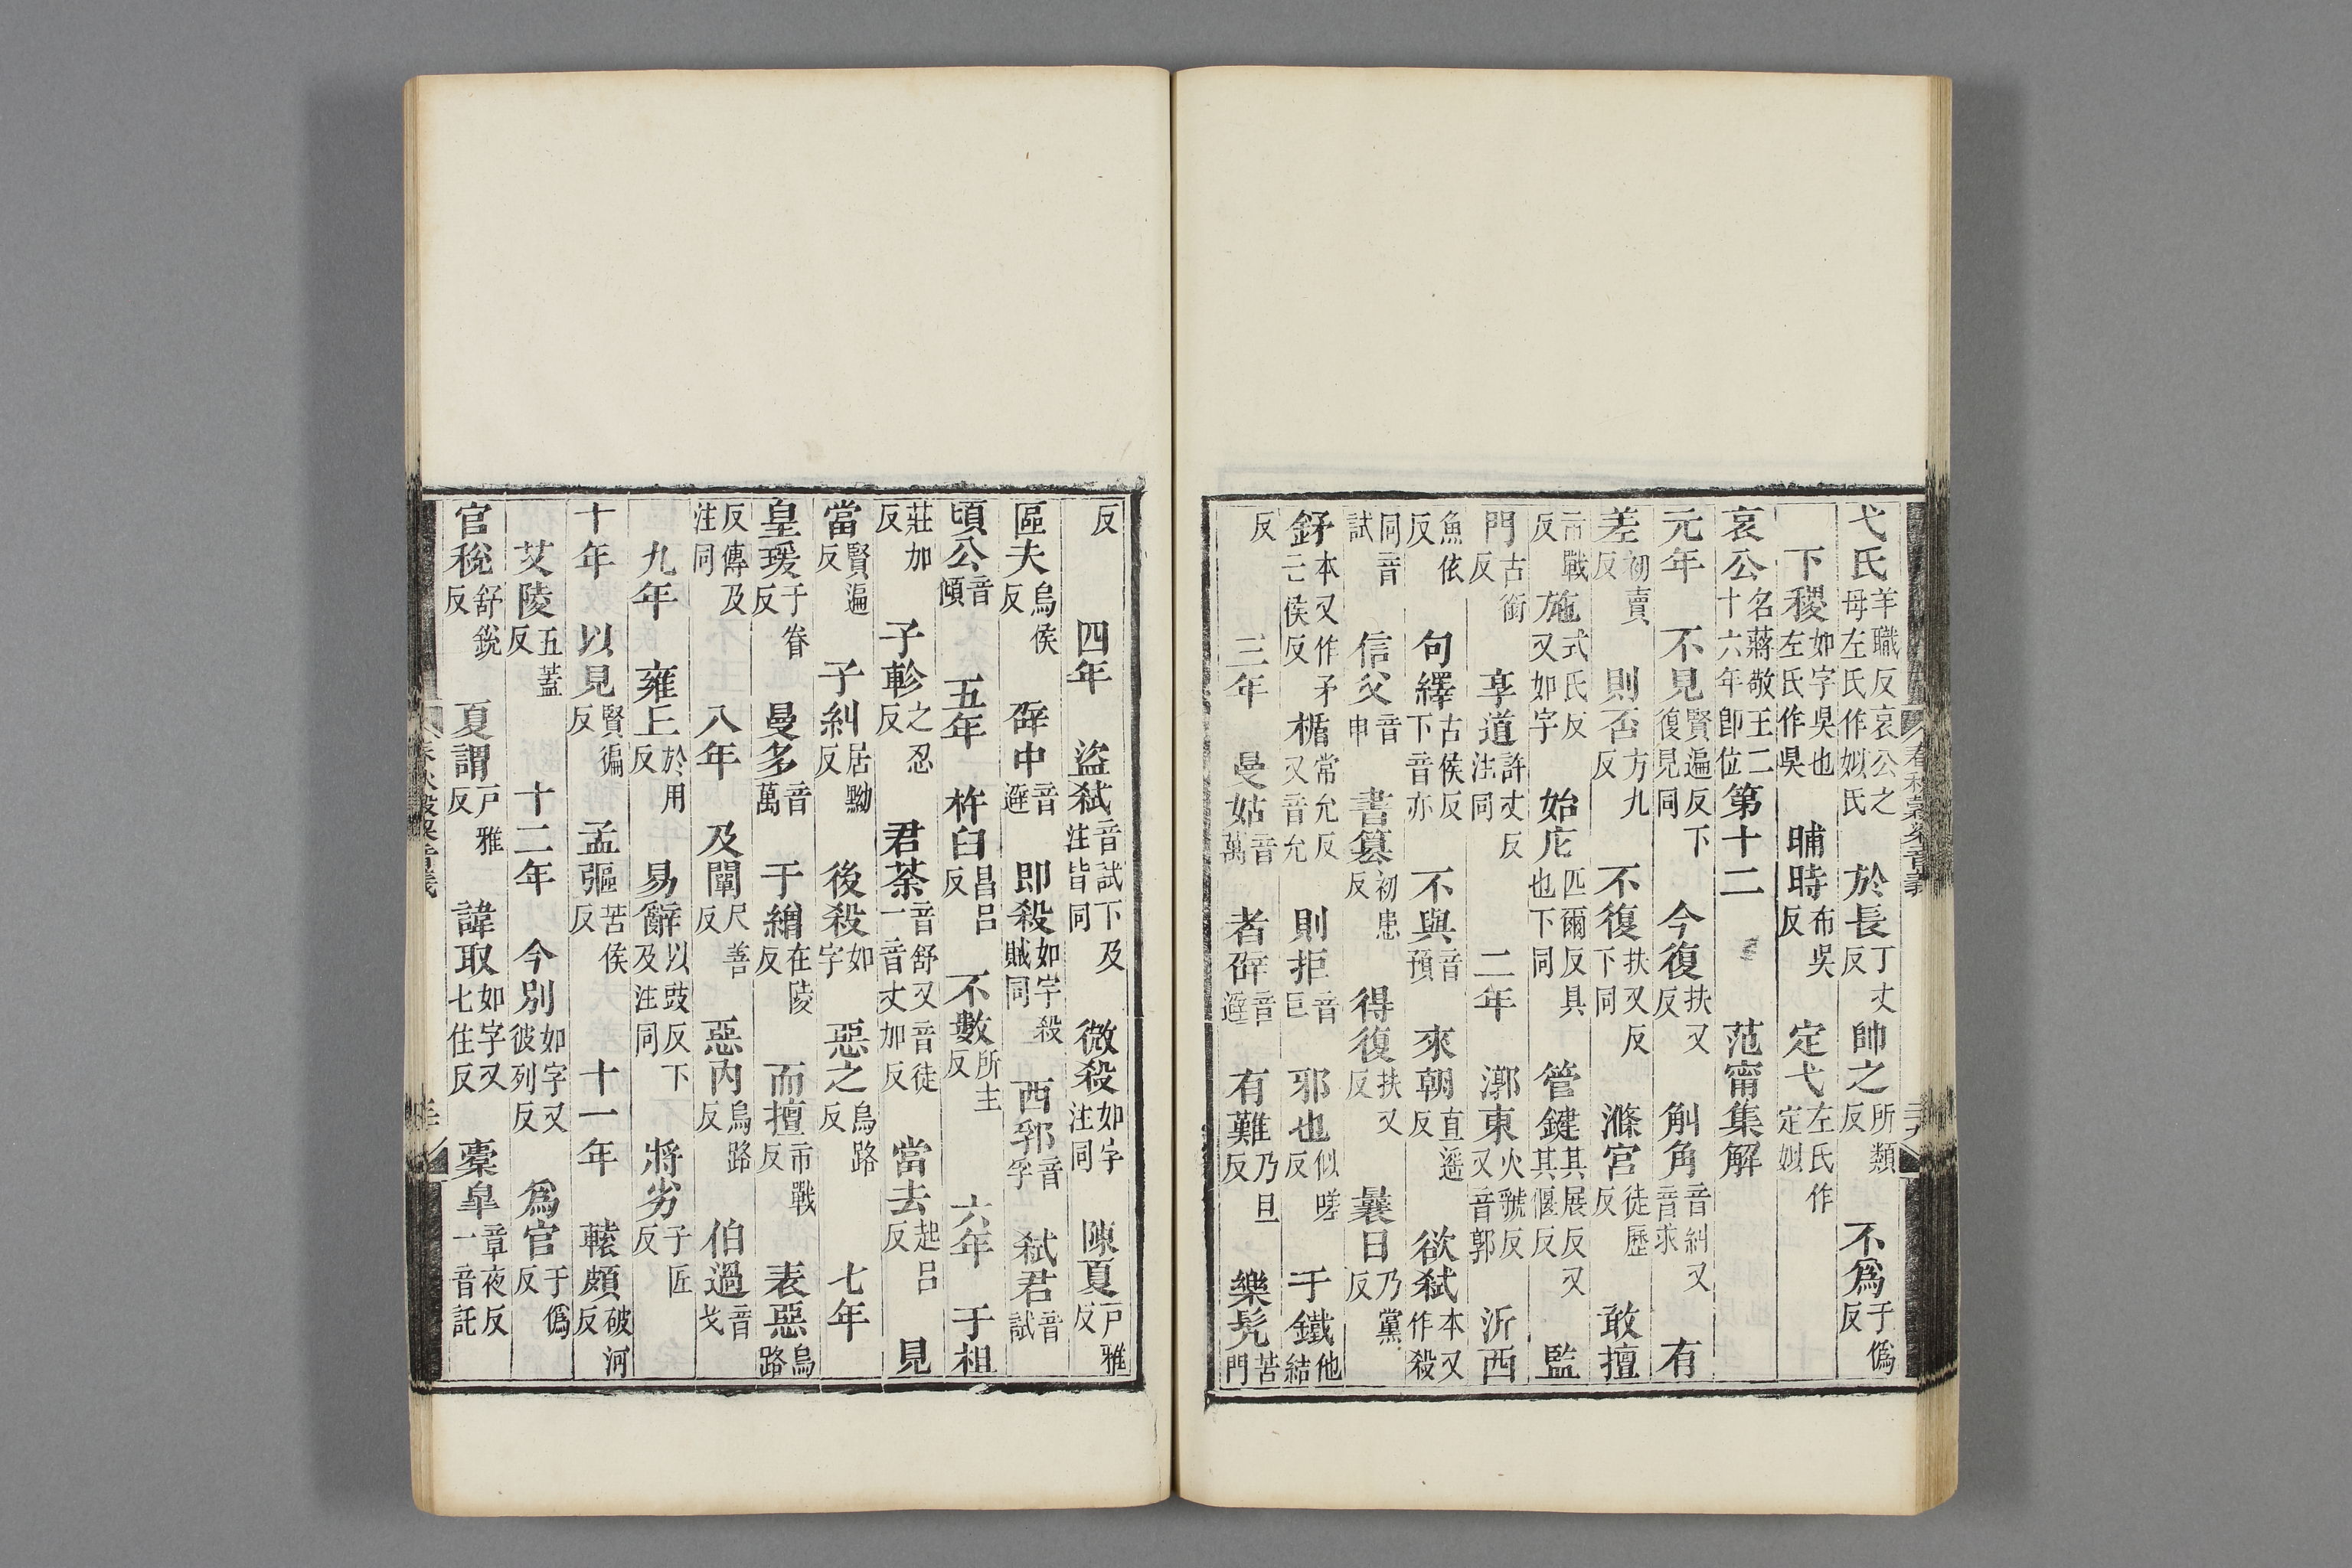 弋氏羊職反哀公之母左氏作姒氏於長丁丈反帥之所類反不爲于僞反
下稷如字吳也左氏作吳晡時布吳反定弋左氏作定姒
哀公名蔣敬王二十六年卽位第十二 范甯集解
元年 不見賢遍反下復見同今復扶又反斛角音糾又音求有
差初賣反則否方九反不復扶又反下同滌宮徒歷反敢擅
市戰反施式氏反又如字始庀匹爾反具也下同管鍵其展反又其偃反監
門古銜反享道許丈反注同二年 漷東火虢反又音郭沂西
魚依反句繹古侯反下音亦不與音預來朝直遥反欲弑本又作殺
同音試信父音申書簒初患反得復扶又反曩日乃黨反
鉜本又作矛亡侯反楯常允反又音允則拒音巨邪也似嗟反于鐵他結
反 三年 曼姑音萬者辟音避有難乃旦反樂髡苦門
反 四年 盜弑音試下及注皆同微殺如字注同陳夏戸雅反
區夫烏侯反辟中音避即殺如字殺賊同西郛音孚弑君音試
頃公音傾五年 杵臼昌呂反不數所主反六年 于柤
莊加反子軫之忍反君荼音舒又音徒一音丈加反當去起呂反見
當賢遍反子糾居黝反後殺如字惡之烏路反七年
皇瑗于眷反曼多音萬于繒在陵反而擅市戰反表惡烏路
反傳及注同八年 及闡尺善反惡內烏路反伯過音戈
九年 雍丘於用反易辭以豉反下及注同將劣子匠反
十年 以見賢徧反孟彄苦侯反十一年 轅頗破河反
艾陵五蓋反十二年 今別如字又彼列反爲官于僞反
官稅舒銳反夏謂戸雅反諱取如字又七住反橐皐章夜反一音託